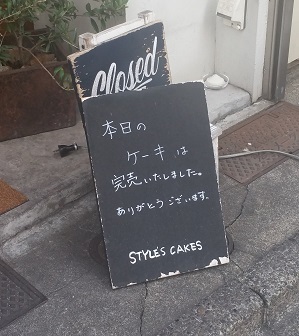 Closed
本日の
ケーキは
完売いたしました。
ありがとうございます。
STYLE'S CAKES